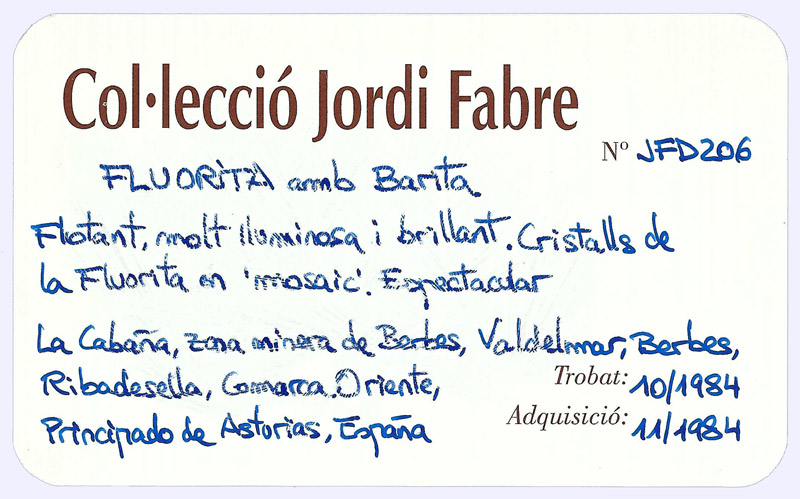 Col·lecció Jordi Fabre
Nº JFD206
FLUORITA amb Barita
Flotant, molt lluminosa i brillant. Cristalls de
la Fluorita en 'mosaic'. Espectacular
La Cabaña, zona minera de Berbes, Valdelmar, Berbes,
Ribadesella, Comarca Oriente,
Trobat: 10/1984
Principado de Asturias, España
Adquisició: 11/1984